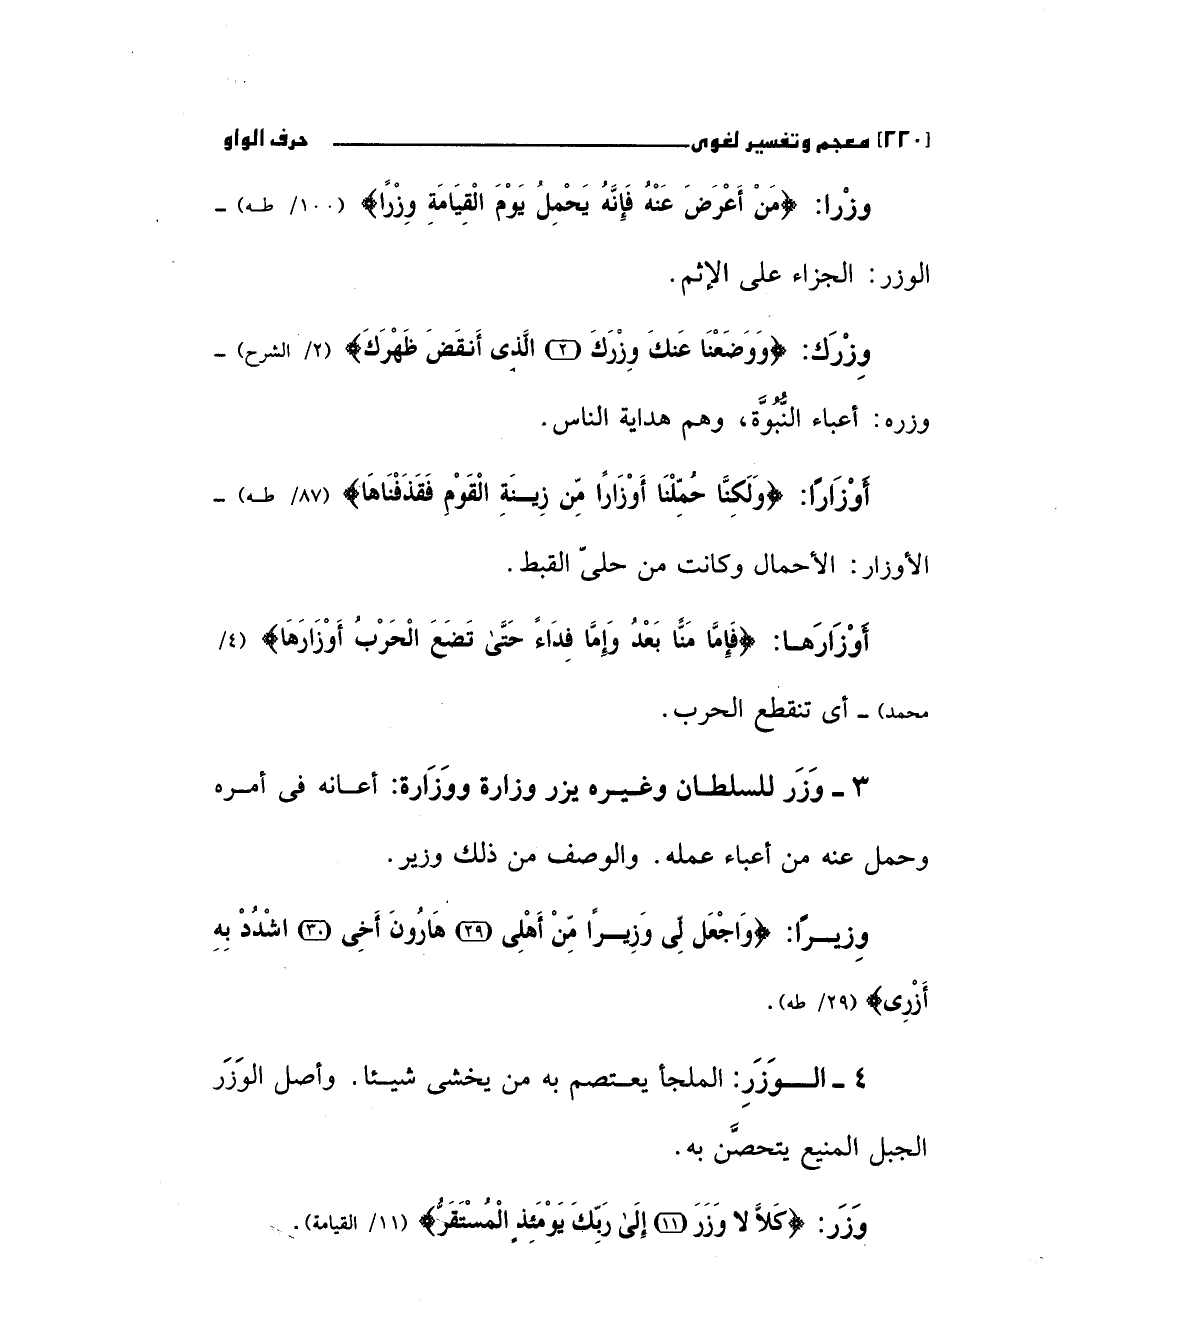 [٢٢٠] معجم وتفسير لغوى ــــــ حرف الواو
وِزْرا: ﴿مَنْ أَعْرَضَ عَنْهُ فَإِنَّهُ يَحْمِلُ يَوْمَ الْقِيَامَةِ وِزْرًا﴾ (١٠٠/ طـه) ـ
الوزر: الجزاء على الإثم.
وِزْرَك: ﴿وَوَضَعْنَا عَنكَ وِزْرَكَ (٢) الَّذِى أَنقَضَ ظَهْرَكَ﴾ (٢/ الشرح) ـ
وزره: أعباء النُّبُوَّة، وهم هداية الناس.
أَوْزَارًا: ﴿وَلَكِنَّا حُمِّلْنَا أَوْزَارًا مِّن زِينَةِ الْقَوْمِ فَقَذَفْنَاهَا﴾ (٨٧/ طـه) ـ
الأوزار: الأحمال وكانت من حلىّ القبط.
أَوْزَارَهـا: ﴿فَإِمَّا مَنًّا بَعْدُ وَإِمَّا فِدَاءً حَتَّىٰ تَضَعَ الْحَرْبُ أَوْزَارَهَا﴾ (٤/
محمد) ـ أى تنقطع الحرب.
٣ ـ وَزَر للسلطـان وغـيـره يزر وزارة ووَزَارة: أعـانه فى أمـره
وحمل عنه من أعباء عمله. والوصف من ذلك وزير.
وزِيـرًا: ﴿وَاجْعَل لِّى وَزِيـرًا مِّنْ أَهْلِى (٢٩) هَارُونَ أَخِى (٣٠) اشْدُدْ بِهِ
أَزْرِى﴾ (٢٩/ طه).
٤ ـ الـوَزَرِ: الملجأ يعـتصم به من يخشى شيـئا. وأصل الوَزَر
الجبل المنيع يتحصَّن به.
وَزَر: ﴿كَلاَّ لا وَزَرَ (١١) إِلَىٰ رَبِّكَ يَوْمَئِذٍ الْمُسْتَقَرُّ﴾ (١١/ القيامة).